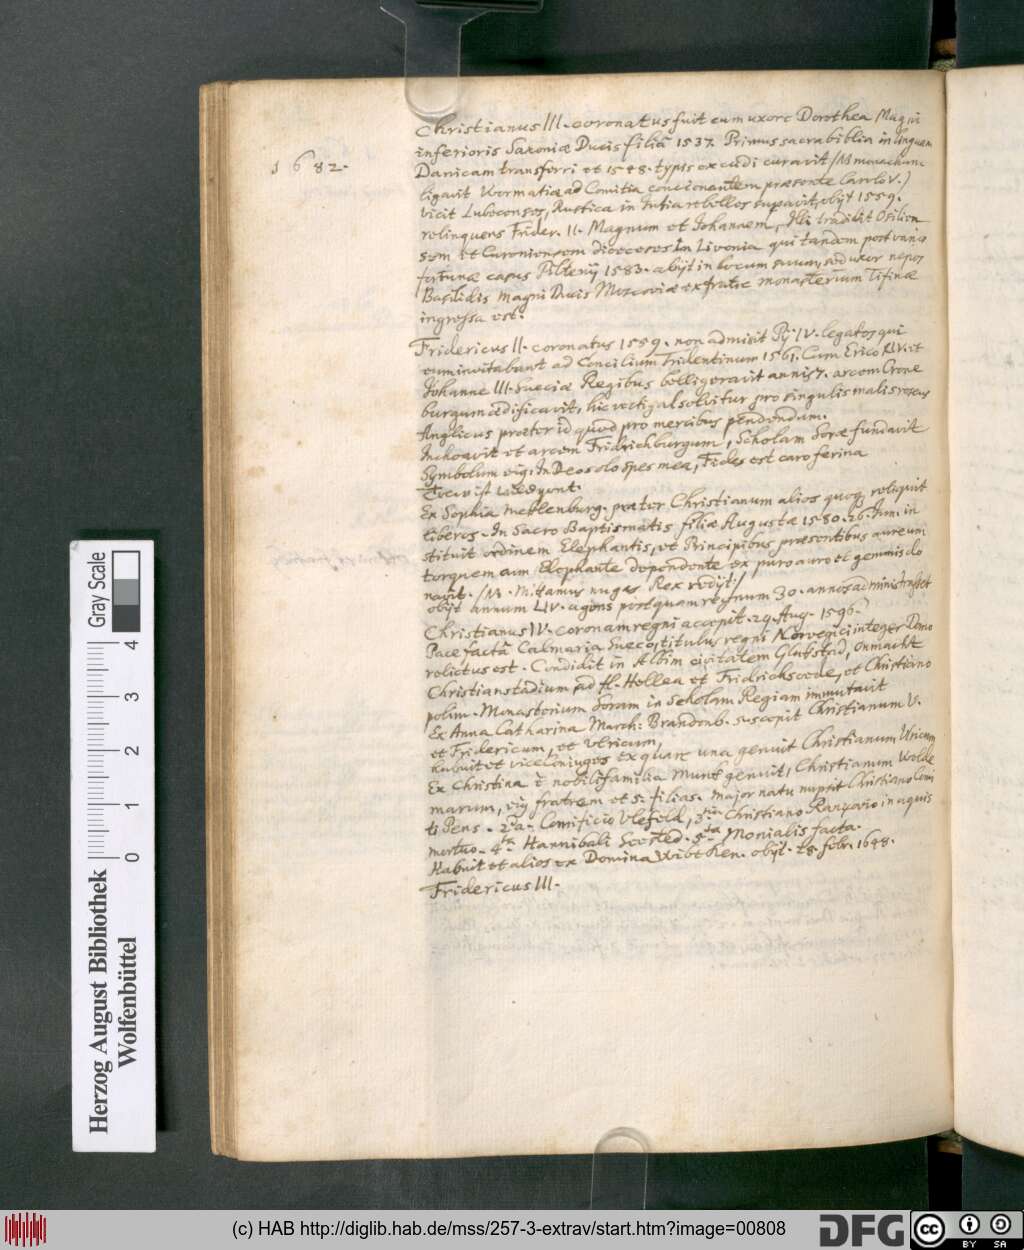 1682.
Christianus III. coronatus fuit cum uxore Dorothea Magni
inferioris Saxoniæ Ducis filiâ 1537. Primus sacra biblia in linguam
Danicam transferri et 1548. typis excudi curavit (M
ligavit Wormatiæ ad Comitia concionantem præsente Carlo V.)
vicit Lubecenses, Rustica in Jutia rebelles supavit, obijt 1559.
relinquens Frider. II. Magnum et Johannem, Illi tradidit Osilien
sem et Curoniensem dioeceses in Livonia qui tandem post varios
fortunæ casus Pilteny 1583. abijt in locum suum, sed uxor nepos
Basilidis Magni Ducis Moscoviæ ex fratre monasterium Tifinæ
ingressa est.
Fridericus II. coronatus 1559. non admisit Pij IV. legatos qui
eum invitabant ad Concilium Tridentinum 1561. Cum Erico XIV. et
Johanne III. Sueciæ Regibus belligeravit annis 7. arcem Crone
burgum ædificavit, hic vectigal solvitur pro singulis malis
Anglicus præter id quod pro mercibus pendendum.
Inchoavit et arcem Fridrichburgum, Scholam Soræ fundavit
Symbolum eig. In Deo solo spes mea, Fides est caro ferina
Trew ist
Ex Sophia Meklenburg. præter Christianum alios quoq. reliquit
liberos. In Sacro Baptismatis filiæ Augustæ 1580. 26. Jun. in
stituit ordinem Elephantis, et Principibus præsentibus aureum
torquem cum Elephante dependente ex puro auro et gemmis do
navit. (M. Mittamus nugas Rex redijt.)
obijt annum LIV. agens postquam regnum 30. annos administrasset
Christianus IV. coronam regni accepit. 29. Aug. 1596.
Pace factâ Calmaria Sueco, titulus regni Norvegici integer Dano
relictus est. Condidit in Albim civitatem Glukstad, Onmacht
Christianstadium, ad fl. Hellea et Fridrichsoede, et Christiano
polim. Monasterium Soram in Scholam Regiam immutavit
Ex Anna Catharina March: Brandenb. suscepit Christianum V.
et Fridericum, et Ulricum,
habuit et vice Conjuges ex quarum una genuit Christianum Ulricum
Ex Christina è nobili familia Munk genuit, Christianum Wolde
marum, eig fratrem et 5. filias. Major natu nupsit Christiano Comi
ti Pens. 2da. Cornificio Ulefeld, 3tia Christiano Ranzovio in aquis
mortuo. 4ta Hannibali Seested. 5ta Monialis facta.
Habuit et alios ex Domina Wibeken. obijt. 28. Febr. 1648.
Fridericus III.
Gray Scale
0 1 2 3 4
Herzog August Bibliothek
Wolfenbüttel
(c) HAB http://diglib.hab.de/mss/257-3-extrav/start.htm?image=00808
DFG
cc BY SA